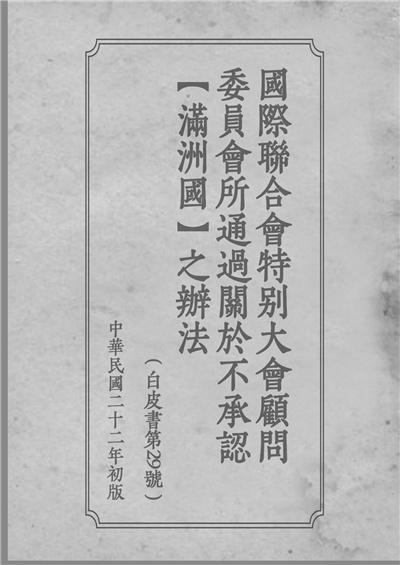 國際聯合會特別大會顧問
委員會所通過關於不承認
【滿洲國】之辦法
（白皮書第29號）
中華民國二十二年初版